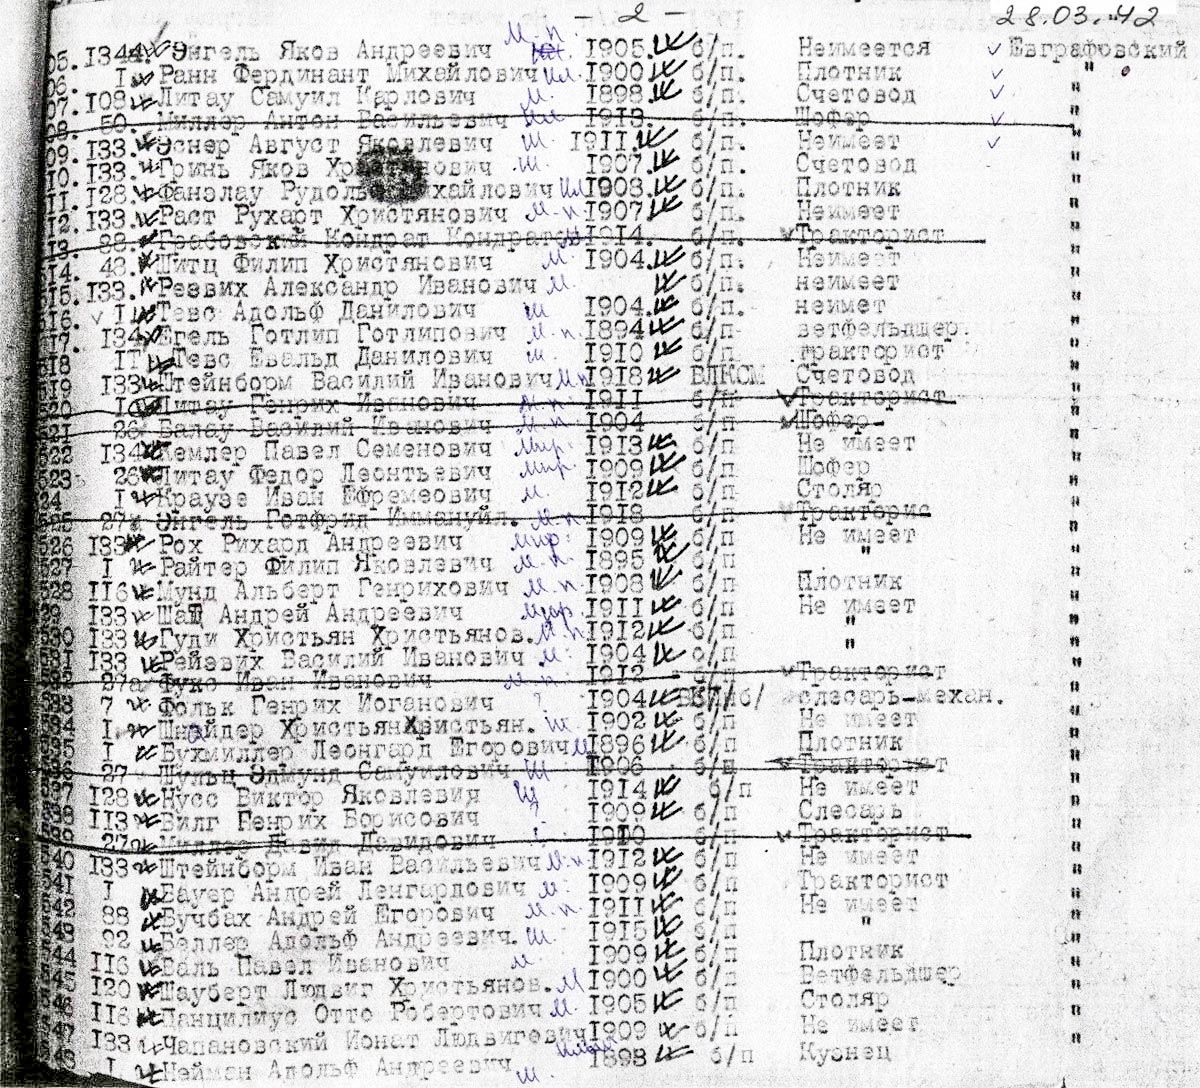 - 2 -
28.03.42
05. 134 Энгель Яков Андреевич м.п. 1905. б/п. Неимеется Евграфовский
06. I Ранн Фердинант Михайлович 1900 б/п. Плотник "
07. 108 Литау Самуил Карлович м. 1898. б/п. Счетовод "
08. 50. Миллер Антон Васильевич 1913. б/п. Шофер "
09. 133. Эснер Август Яковлевич 1911. б/п. Неимеет "
10. 133. Гринь Яков 1907. б/п. Счетовод "
11. 128. Фанэлау 1908. б/п. Плотник "
12. 133. Раст Рухарт Христянович м.п. 1907. б/п. Неимеет "
13. 28. Грабовский Кондрат 1914. б/п. Тракторист "
14. 48. Шитц Филип Христянович м. 1904. б/п. Неимеет "
515. 133. Резвих Александр Иванович м. б/п. неимеет "
516. I Тевс Адольф Данилович 1904. б/п. неимет "
517. 134 Егель Готлип Готлипович м.п. 1894 б/п ветфельдшер. "
518 Тевс Евальд Данилович 1910 б/п тракторист "
519 133 Штейнборм Василий Иванович 1918 ВЛКСМ Счетовод "
520 I Литау Генрих Иванович м.п. 1911 б/п Тракторист "
521 26 Балау Василий Иванович м.п. 1904 б/п Шофер "
522 134 Кемлер Павел Семенович 1913 б/п Не имеет "
523 26 Литау Федор Леонтьевич 1909 б/п Шофер "
24 I Краузе Иван Ефремеович м. 1912 б/п Столяр "
525 27 Энгель Готфрид Иммануйл. м.п. 1918 б/п Тракторис "
526 133 Рох Рихард Андреевич 1909 б/п Не имеет "
527 I Райтер Филип Яковлевич м.п. 1895 б/п " "
528 116 Мунд Альберт Генрихович м.п. 1908 б/п Плотник "
29 133 Шац Андрей Андреевич 1911 б/п Не имеет "
530 133 Гуди Христьян Христьянов. м.п. 1912 б/п " "
531 133 Рейзвих Василий Иванович м. 1904 б/п " "
532 27а Фукс Иван Иванович м.п. 1912 б/п Тракторист "
533 7 Фольк Генрих Иоганович ? 1904 слесарь-механ. "
534 I. Шнайдер Христьян Христьян. 1902 б/п Не имеет "
535 I Бухмиллер Леонгард Егорович 1896 б/п Плотник "
536 27 Шульц Эдмунд Самуилович 1906 б/п Тракторист "
537 128 Нусс Виктор Яковлевич 1914 б/п Не имеет "
538 113 Вилг Генрих Борисович ? 1909 б/п Слесарь "
539 27а Миллер Давид Давидович ? 1910 б/п Тракторист "
540 133 Штейнборм Иван Васильевич м.п. 1912 б/п Не имеет "
541 I Бауер Андрей Ленгардович м. 1909 б/п Тракторист "
542 88 Бучбах Андрей Егорович м.п. 1911 б/п Не имеет "
543 92 Веллер Адольф Андреевич. 1915 б/п " "
544 116 Валь Павел Иванович м. 1909 б/п Плотник "
545 120 Шауберт Людвиг Христьянов. м 1900 б/п Ветфельдшер "
546 116 Панцилиус Отто Робертович м. 1905 б/п Столяр "
547 133 Чапановский Ионат Людвигевич 1909 б/п Не имеет "
548 I. Нейман Адольф Андреевич 1898 б/п Кузнец